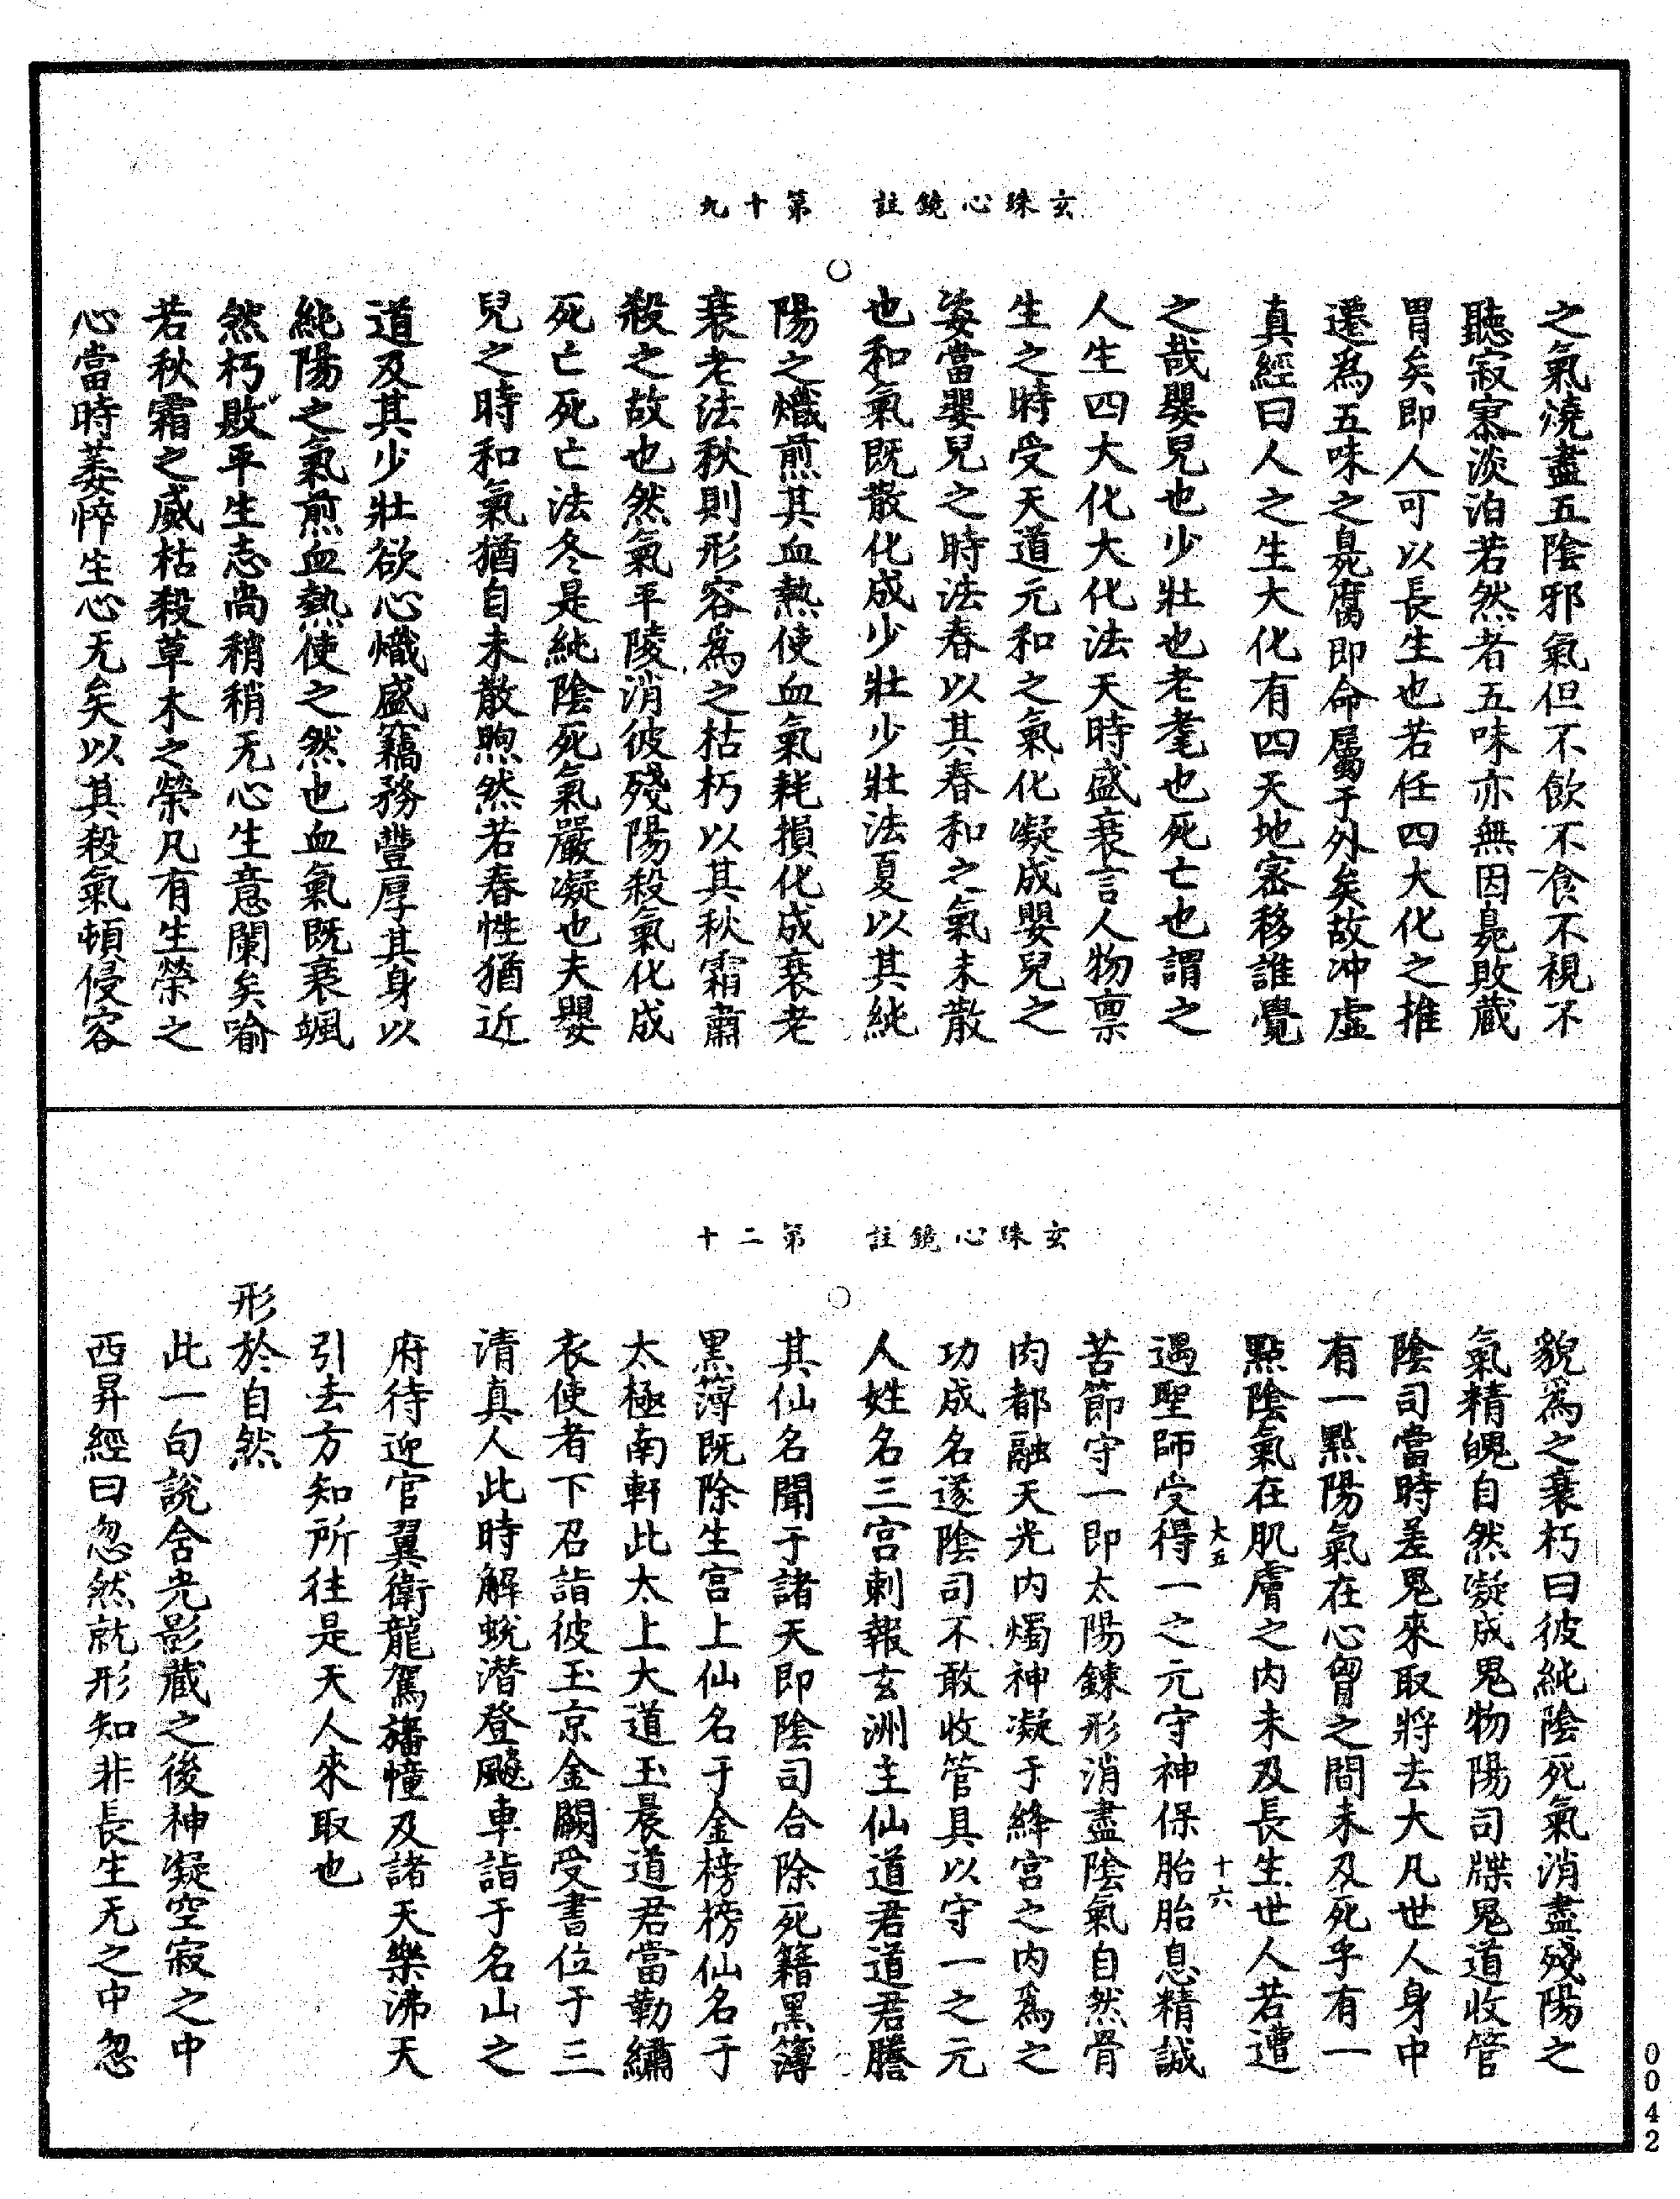 玄珠心鏡註　第十九
之氣燒盡五陰邪氣但不飲不食不視不
聽寂寞淡泊若然者五味亦無因臰敗藏
胃矣即人可以長生也若任四大化之推
遷爲五味之臰腐即命屬于外矣故冲虛
真經曰人之生大化有四天地密移誰覺
之哉嬰兒也少壯也老耄也死亡也謂之
人生四大化大化法天時盛衰言人物禀
生之時受天道元和之氣化凝成嬰兒之
姿當嬰兒之時法春以其春和之氣未散
也和氣既散化成少壯少壯法夏以其純
陽之熾煎其血熱使血氣耗損化成衰老
衰老法秋則形容爲之枯朽以其秋霜肅
殺之故也然氣平陵消彼殘陽殺氣化成
死亡死亡法冬是純陰死氣嚴凝也夫嬰
兒之時和氣猶自未散煦然若春性猶近
道及其少壯欲心熾盛竊務豐厚其身以
純陽之氣煎血熱使之然也血氣既衰颯
然朽敗平生志尚稍稍无心生意闌矣喻
若秋霜之威枯殺草木之榮凡有生榮之
心當時萎悴生心无矣以其殺氣頓侵容
玄珠心鏡註　第二十
貌爲之衰朽曰彼純陰死氣消盡殘陽之
氣精魄自然凝成鬼物陽司牒鬼道收管
陰司當時差鬼來取將去大凡世人身中
有一點陽氣在心胷之間未及死乎有一
點陰氣在肌膚之内未及長生世人若遭
大五　十六
遇聖師受得一之元守神保胎胎息精誠
苦節守一即太陽鍊形消盡陰氣自然骨
肉都融天光内燭神凝于絳宫之内爲之
功成名遂陰司不敢收管具以守一之元
人姓名三宫刺報玄洲主仙道君道君謄
其仙名聞于諸天即陰司合除死籍黑簿
黑簿既除生宫上仙名于金榜榜仙名于
太極南軒此太上大道玉晨道君當勒繡
衣使者下召詣彼玉京金闕受書位于三
清真人此時解蛻潛登飈車詣于名山之
府待迎官翼衛龍駕旛幢及諸天樂沸天
引去方知所往是天人來取也
形於自然
此一句說舍光影藏之後神凝空寂之中
西昇經曰忽然就形知非長生无之中忽
0042